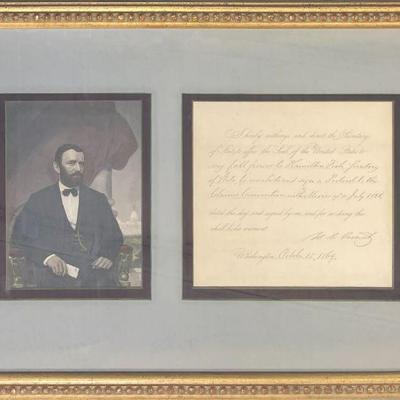 I hereby authorize and direct the Secretary
of State to affix the Seal of the United States to
my full power to Hamilton Fish, Secretary
of State, to a Protocol to the
Claims Convention with Mexico of July
dated this day, and signed by me, and for so doing this
shall be his warrant.
U. S. Grant
Washington, October 15, 1869.